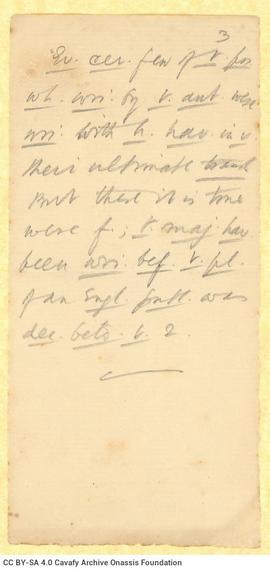 3
Ev. cer. few of v. pos
wh. wri. by v. aut. were
wri. with h. hav. in v.
their ultimate
But these it is true
were f.; v. maj. hav
been wri. bef. v. pl.
of an Engl. publ. was
dec. betw. v. 2.
CC BY-SA 4.0 Cavafy Archive Onassis Foundation